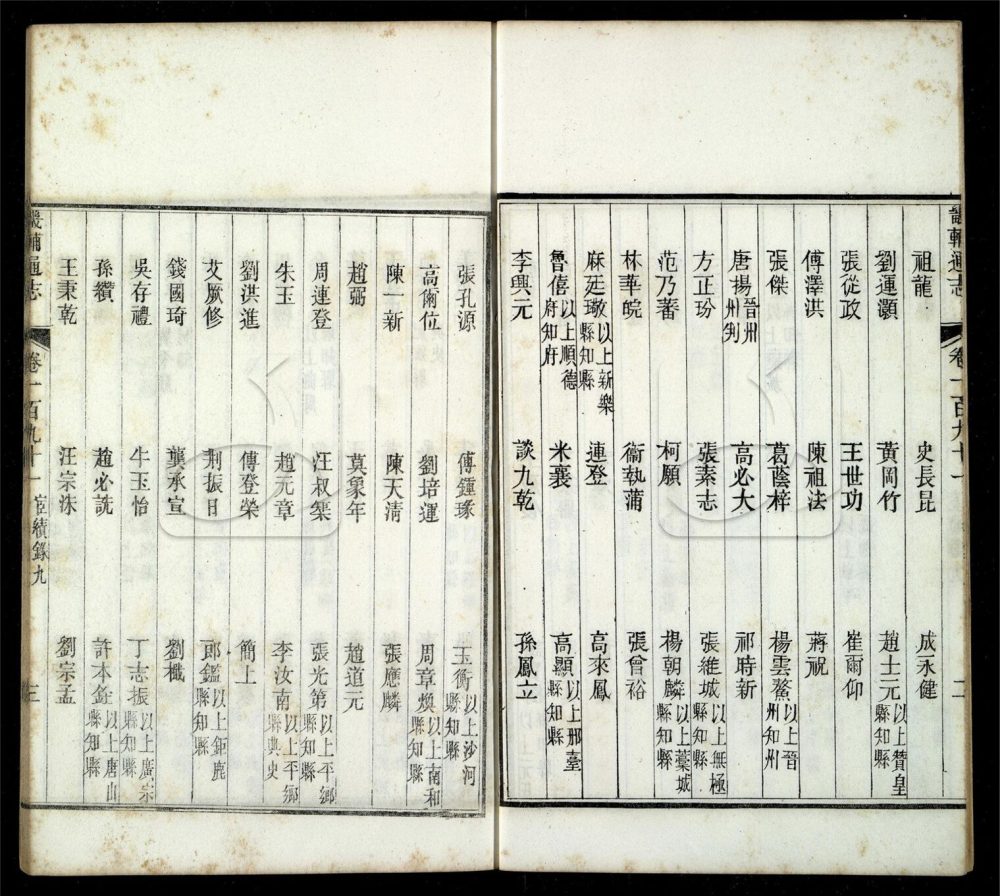 畿輔通志 卷一百九十一 二
祖龍 史長昆 成永健
劉運灝 黃岡竹 趙士元以上贊皇縣知縣
張從政 王世功 崔爾仰
傅澤淇 陳祖法 蔣祝
張傑 葛蔭梓 楊雲鰲以上晉州知州
唐揚晉州州判 高必大 祁時新
方正玢 張素志 張維城以上無極縣知縣
范乃蕃 柯願 楊朝麟以上藁城縣知縣
林華皖 衞執蒲 張曾裕
麻廷璥以上新樂縣知縣 連登 高來鳳
魯僖以上順德府知府 米襄 高顯以上邢臺縣知縣
李興元 談九乾 孫鳳立
張孔源 傅鍾瑑 王衡以上沙河縣知縣
高衕位 劉培運 周章煥以上南和縣知縣
陳一新 陳天清 張應麟
趙弼 莫象年 趙道元
周連登 汪叔 張光第以上平鄉縣知縣
朱玉 趙元章 李汝南以上平鄉縣典史
劉洪進 傅登榮 簡上
艾厥修 荆振日 郎鑑以上鉅鹿縣知縣
錢國琦 龔承宣 劉櫼
吳存禮 牛玉怡 丁志振以上廣宗縣知縣
孫纘 趙必詵 許本銓以上唐山縣知縣
王秉乾 汪宗洙 劉宗孟
畿輔通志 卷一百九十一 宦績錄九